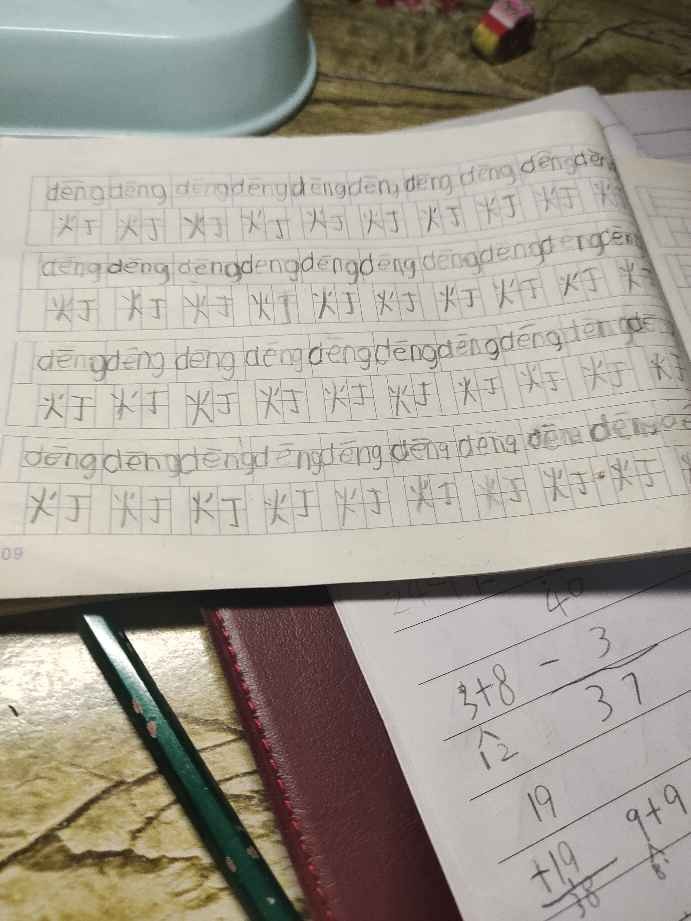 dēng dēng dēng dēng dēng dēng dēng dēng dēng dēn
灯 灯 灯 灯 灯 灯 灯 灯 灯 火
dēng dēng dēng dēng dēng dēng dēng dēng dēng dēn
灯 灯 灯 灯 灯 灯 灯 灯 灯 灯
dēng dēng dēng dēng dēng dēng dēng dēng dēng dē
灯 灯 灯 灯 灯 灯 灯 灯 灯 灯
dēng dēng dēng dēng dēng dēng dēng dēng dēng
灯 灯 灯 灯 灯 灯 灯 灯 灯
09
40
3+8 - 3
12 37
19
+19 9+9
38 8